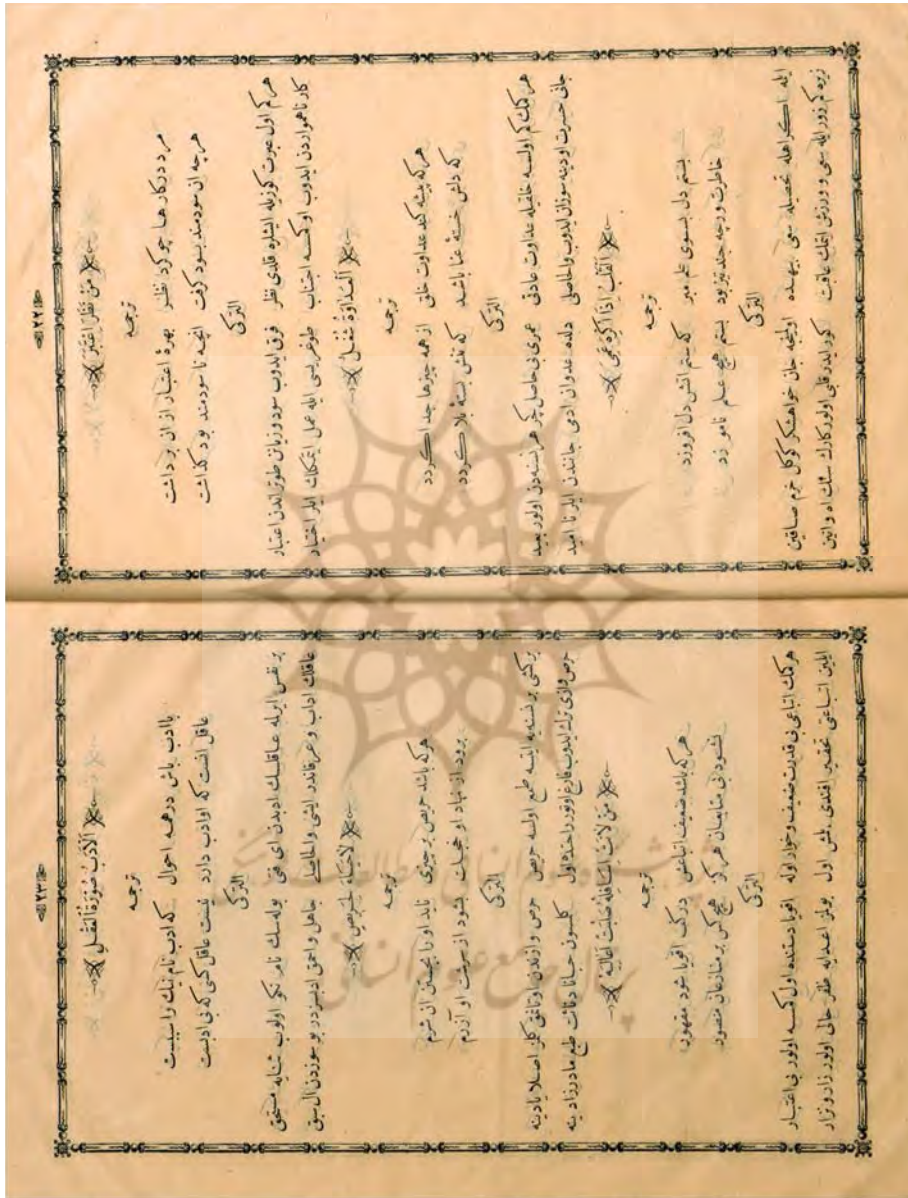 ۲۲
مَنْ نَظَرَ اعْتَبَرَ
ترجمه
مرد در کارها چو کرد نظر بهرهٔ اعتبار ازان برداشت
هرچه آن سودمند بود گرفت آنچه ناسودمند بود گذاشت
الترکی
هر کم اول عبرت کوزیله ایشلره قلدی نظر فرق ایدوب سود و زیانن طوتر اندن اعتبار
کار ناهمواردن ایدوب او کسه اجتناب طوغریسی ایله عمل ایتمکلک ایلر اختیار
اَلْعَدَاوَةُ شُغْلٌ
ترجمه
هر که پیشه کند عداوت خلق از همه چیزها جدا گردد
که دلش خستهٔ عنا باشد که تنش بستهٔ بلا گردد
الترکی
هر کمک کم اولسه خلقیله عداوت عادتی عمری بی حاصل کچر هر نسنه‌دن اولور بعید
جانی حسرت اودینه سوزان ایدوب والحاصلی دلده عدوان ادمی جانندن ایلر نا امید
اَلْقَلْبُ اِذَا اُکْرِهَ عَمِیَ
ترجمه
بستم دل بسوی علم مبر که ستم آتش دل افروزد
خاطرت ورچه جند تیز بود بستم هیچ علم نامو زد
الترکی
ایله اکراهله تحصیله سعی بیهده اولینجه جان خواهشکر کوکل خرم صاقین
زیره کم زور ایله سعی و ورزش ایتمک عاقبت کور ایدر قلبی اولور کارک سنک اه وانین
۲۳
اَلْاَدَبُ صُورَةُ الْعَقْلِ
ترجمه
باادب باش در همه احوال که ادب نام نیک را سببست
عاقل انست که اوادب دارد نیست عاقل کسی که بی ادبست
الترکی
بر نفس ایرلمه عاقلسک ادبدن ای فتی بوله‌سک نام نکو اولوب ثنایه مستحق
عاقلک اداب و عرفاندر ایشی والحاصلی جاهل و احمق ادبسزدر بو سوزدن ال سبق
لَاحَیَاءَ لِحَرِیصٍ
ترجمه
هر که باشد حریص بر چیزی ناید او را بجستن آن شرم
برود از نهاد او خجلت بشود از سرشت او آزرم
الترکی
بر کشی بر نسنه‌یه اینسه طمع اولسه حریص حرص و ازندن اوتانمق کلمز اصلا یادینه
حرص و ازی ترک ایدوب فارغ اوتور راحتده اول کلسون حیانا دئائت طبع مادرزادینه
مَنْ لَانَتْ اَسَافِلُهُ صَلُبَتْ اَعَالِیهِ
ترجمه
هر که باشد ضعیف اتباعش در کف اقویا شود مقهور
نشود بی متابعان هرگز هیچ کس بر منازعان منصور
الترکی
هر کمک اتباعی بی قدرت ضعیف و خوار اوله اقویا دستنده اول کسه اولور بی اعتبار
ایلین اتباعنی تحقیر افندی بلمش اول بولمز اعدایه ظفر حالی اولور زار و نزار
پژوهشگاه علوم انسانی و مطالعات فرهنگی
پرتال جامع علوم انسانی